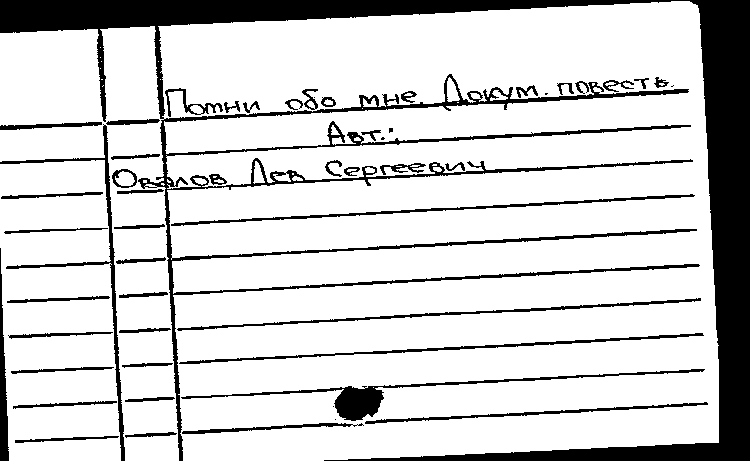 Помни обо мне. Докум. повесть.
Авт.:
Овалов, Лев Сергеевич